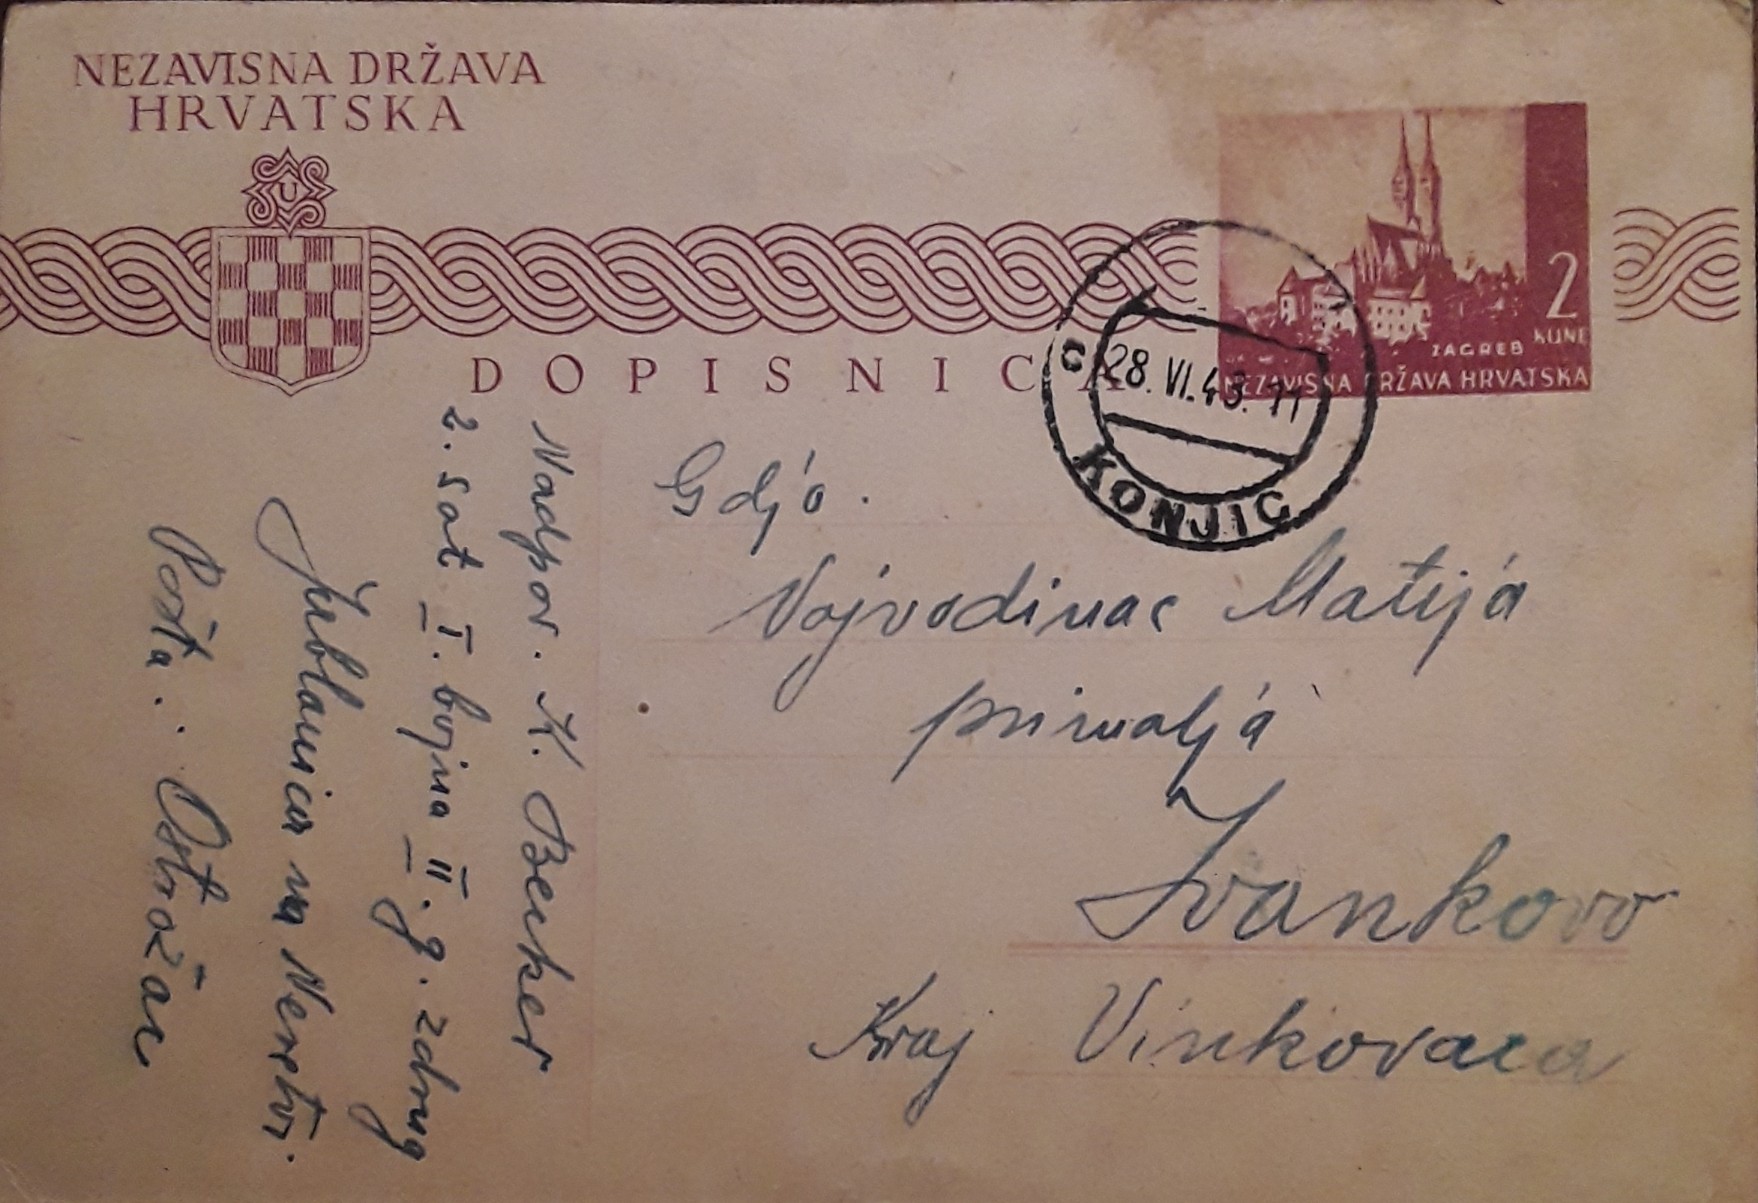 NEZAVISNA DRŽAVA
HRVATSKA
U
2
KUNE
ZAGREB
NEZAVISNA DRŽAVA HRVATSKA
DOPISNICA
C
28. VI. 43. 11
KONJIC
Gdjo.
Vojvodinac Matija
primalja
Ivankovo
Kraj Vinkovaca
Nadpor. K. Becker
2. sat. I. bojna II. g. zdrug
Jablanica na Neretvi.
Pošta: Ostrožac